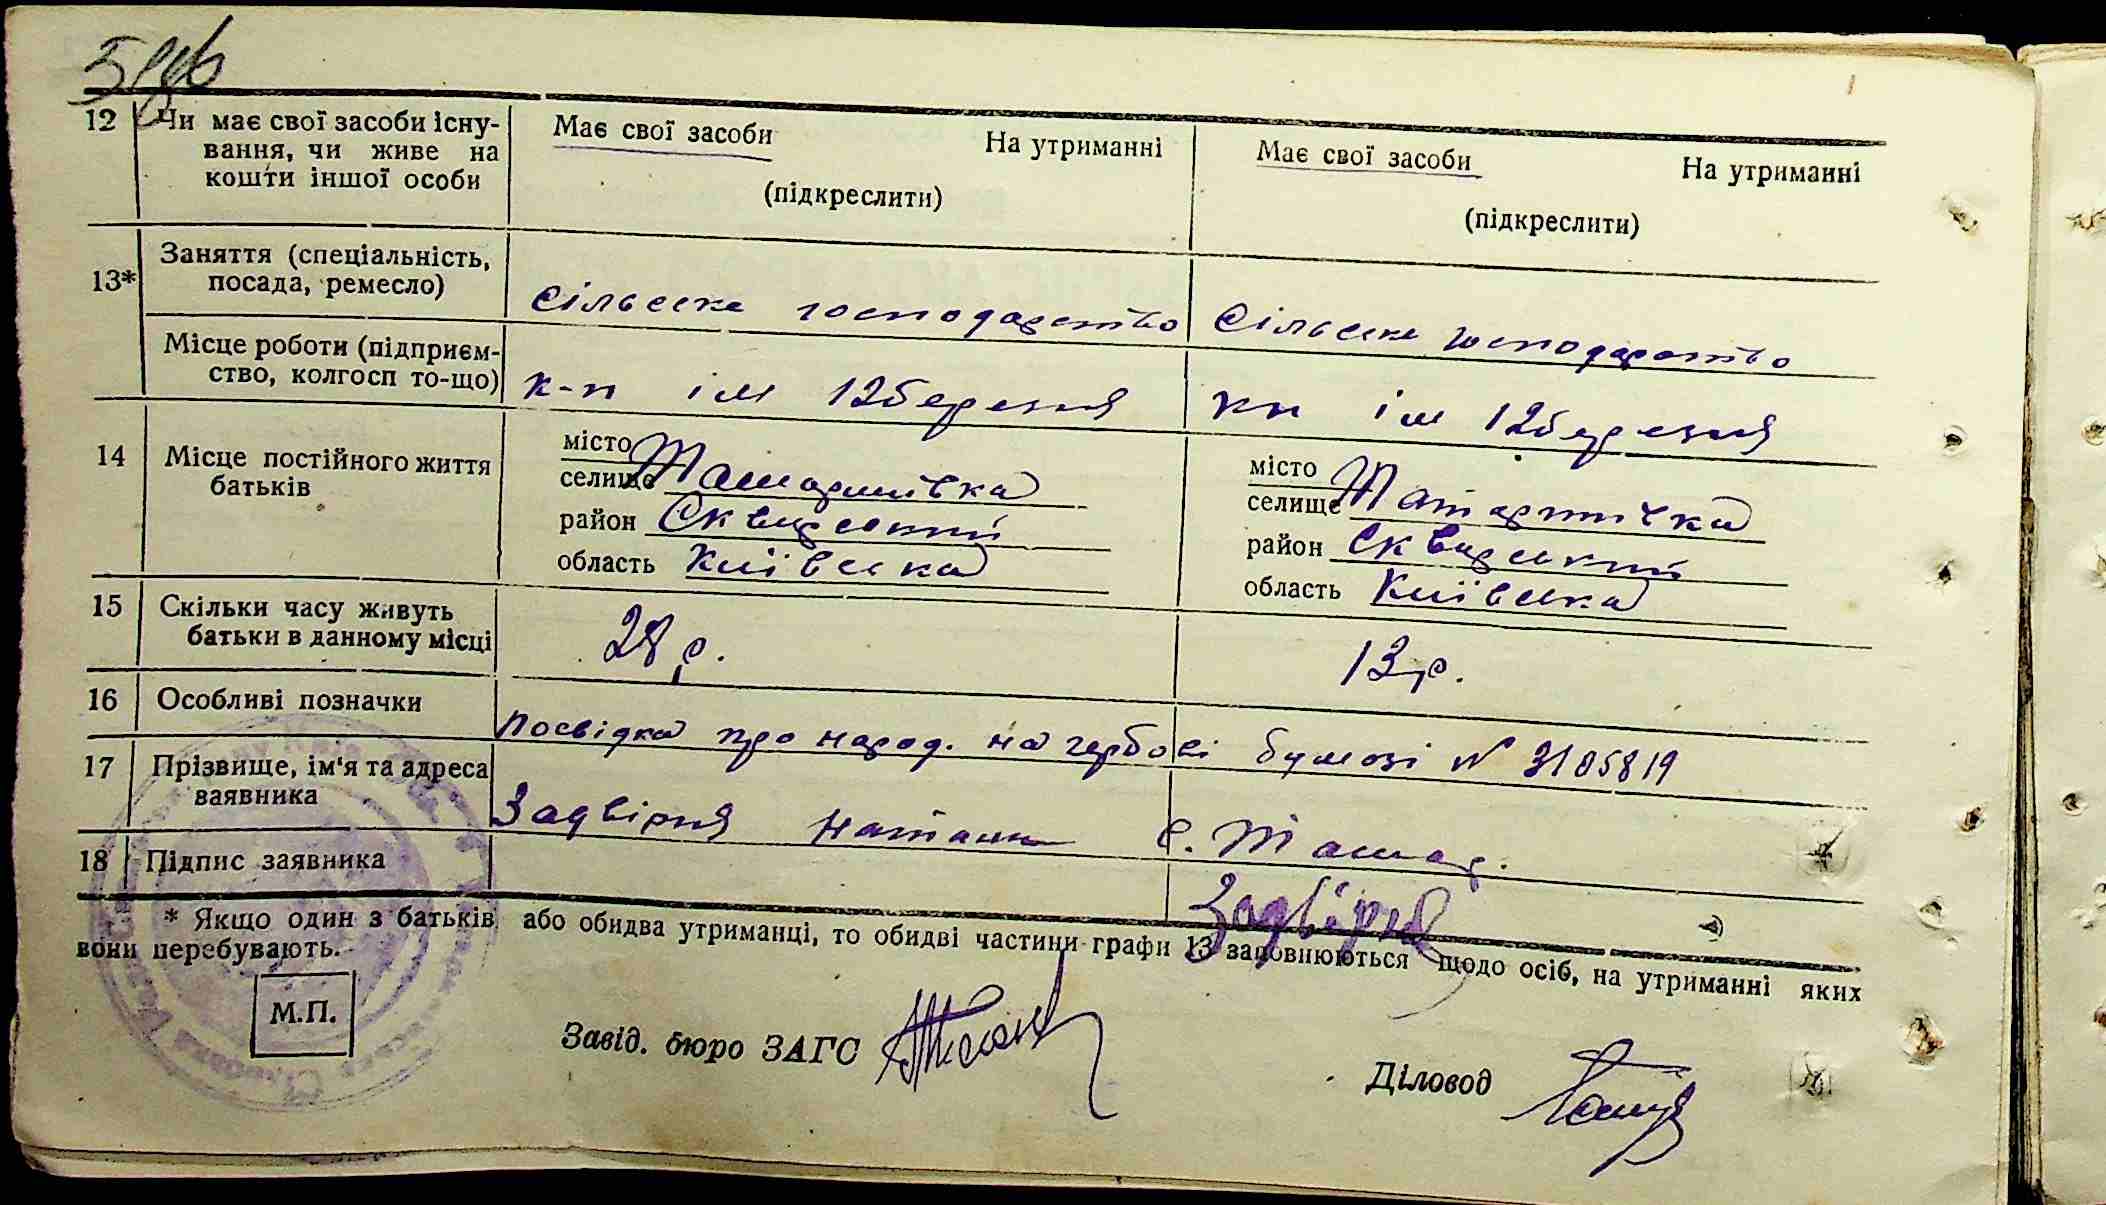 12 Чи має свої засоби існу-
вання, чи живе на
кошти іншої особи
Має свої засоби На утриманні
(підкреслити)
Має свої засоби На утриманні
(підкреслити)
13* Заняття (спеціальність,
посада, ремесло)
Сільське господарство Сільське господарство
Місце роботи (підприєм-
ство, колгосп то-що)
к-п ім 12 березня кп ім 12 березня
14 Місце постійного життя
батьків
місто
селище
район Сквирський
область Київська
місто
селище
район Сквирський
область Київська
15 Скільки часу живуть
батьки в данному місці
28 р. 13 р.
16 Особливі позначки
Посвідка про народ. на гербові бумозі N 3105819
17 Прізвище, ім'я та адреса
заявника
Задвірня с.
18 Підпис заявника
Задвірня
* Якщо один з батьків або обидва утриманці, то обидві частини графи 13 заповнюються щодо осіб, на утриманні яких
вони перебувають.
М.П.
Завід. бюро ЗАГС
Діловод